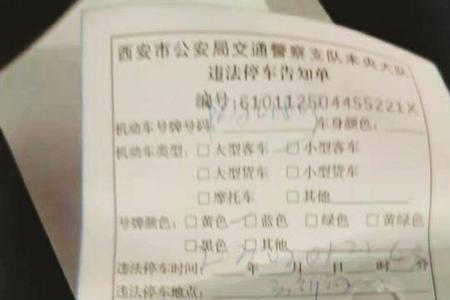 西安市公安局交通警察支队未央大队
违法停车告知单
编号:610112504455221X
机动车号牌号码: 车身颜色:
机动车类型: □大型客车 □小型客车
□大型货车 □小型货车
□摩托车 □其他
号牌颜色: □黄色 □蓝色 □绿色 □黄绿色
□黑色 □其他
违法停车时间: 年 月 日 时 分
违法停车地点: